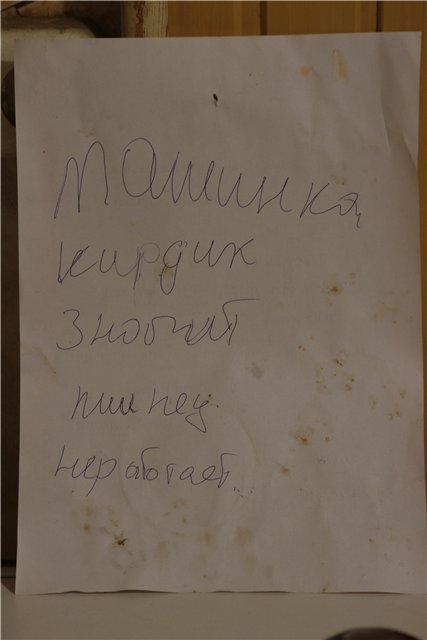 Машинка,
кирдик
значит
пипец
неработает...